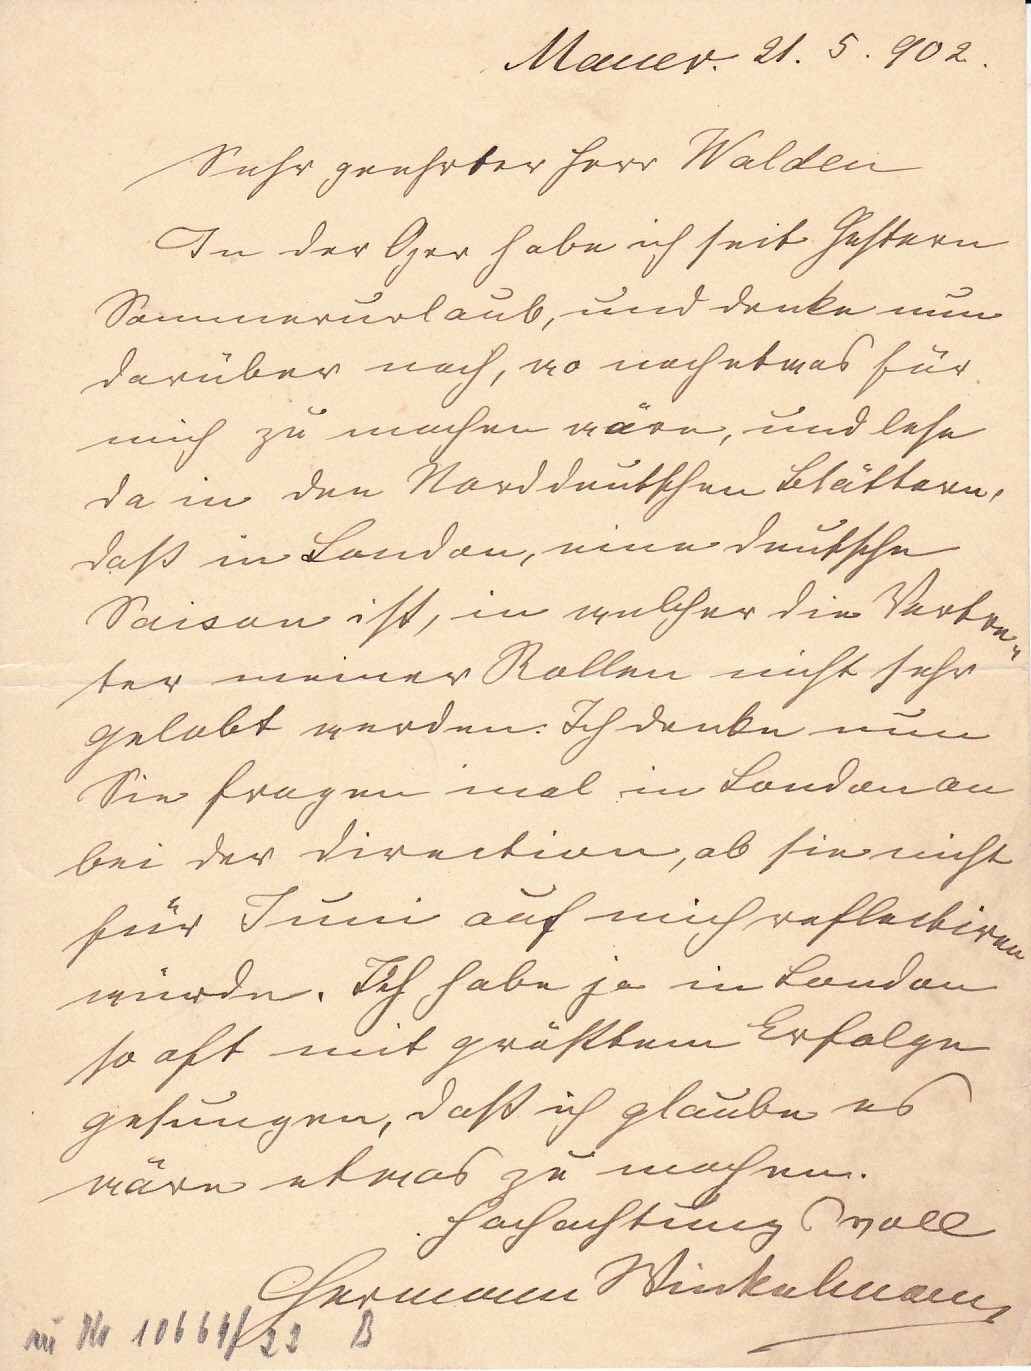 Mauer. 21. 5. 902.
Sehr geehrter Herr Walden
In der Oper habe ich seit Gestern
Sommerurlaub, und denke nun
darüber nach, wo noch etwas für
mich zu machen wäre, und lese
da in den Norddeutschen Blättern,
daß in London, eine deutsche
Saison ist, in welcher die Vertre„
ter meiner Rollen nicht sehr
gelobt werden. Ich denke nun
Sie fragen mal in London an
bei der Direction, ob sie nicht
für Juni auf mich reflectiren
würde. Ich habe ja in London
so oft mit größtem Erfolge
gesungen, daß ich glaube es
wäre etwas zu machen.
Hochachtungsvoll
Hermann Winkelmann
zu Nr 10664/22 B